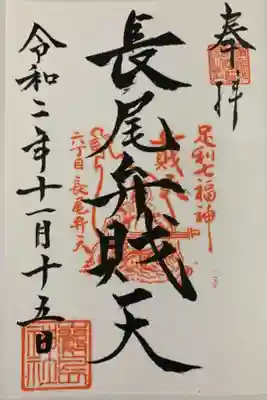 奉拝
足利七福神
長尾弁財天
六丁目 長尾弁天
令和二年十一月十五日
嚴島神社